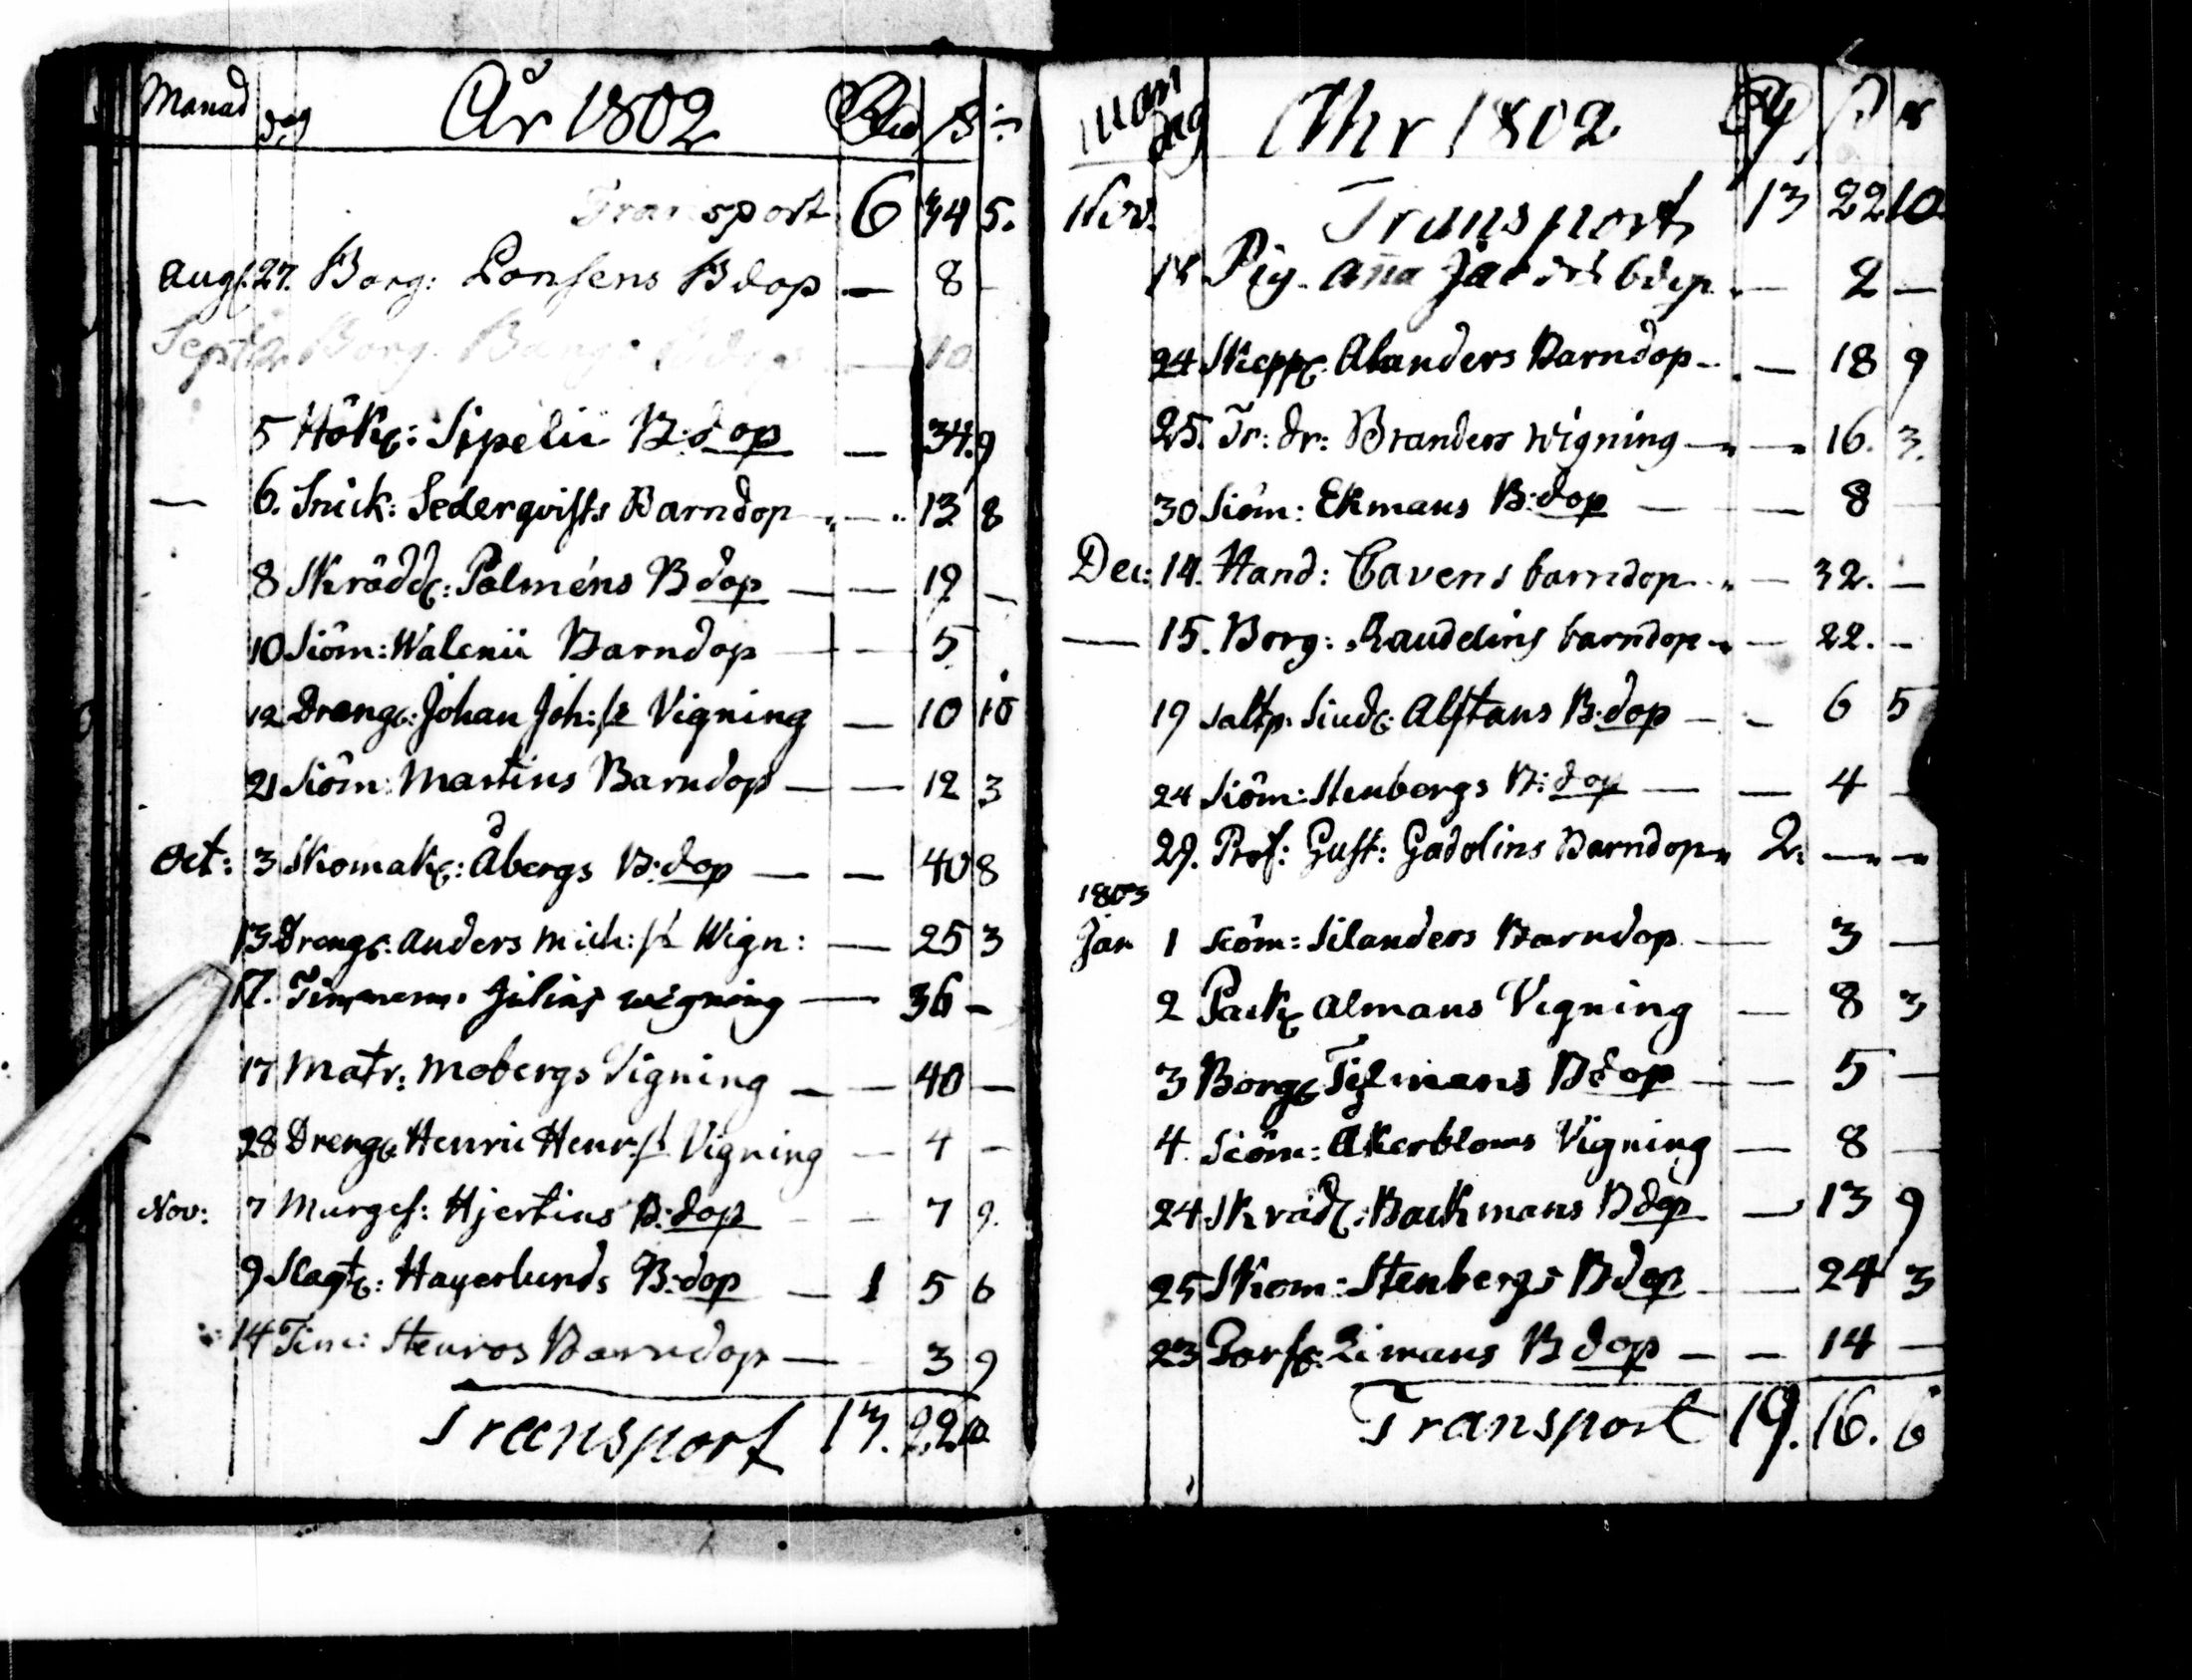 Månad dag År 1802 Rd ß
Transport 6 34 5.
Aug: 27. Borg: Lonsens Bdop — 8 —
Sept: Borg. Bang — 10
5 Hök: Sipelii B:dop — 34. 9
— 6. Snick: Sederqvists Barndop — 13 8
8 Skrädd: Palméns Bdop — — 19 —
10 Siöm: Walenii Barndop — — 5
12 Dreng: Johan Joh: Vigning — 10 10
21 Siöm: Martins Barndop — — 12 3
Oct: 3 Skomak: Åbergs B:dop — — 40 8
13 Dreng: Anders Mich: Wign: — 25 3
17. Timmerm. Julins wigning — 36 —
17 Matr: Mobergs Vigning — — 40 —
28 Dreng Henric Henr Vigning — 4 —
Nov: 7 Murges: Hjertins B:dop — — 7 9.
9 Slagt: Hagerlunds B:dop — 1 5 6
14 Tim: Stenros Barndop — 3 9
Transport 13. 22 10
Mån dag Åhr 1802
Nov. Transport 13 22 10
18 Pig. Anna bdop — 2 —
24 Skepp: Alanders Barndop — 18 9
25. Tr: dr: Branders wigning — — 16. 3.
30 Siöm: Ekmans B:dop — — 8 —
Dec: 14. Hand: Cavens barndop — 32. —
— 15. Borg: Randelins barndop — 22. —
19 Saltp. Siud: Alstans B:dop — — 6 5
24 Siöm: Stenbergs B:dop — — 4 —
29. Prof: Gust: Gadolins Barndop 2. — —
1803
Jan 1 Siöm: Silanders Barndop — 3 —
2 Pack Almans Vigning — 8 3
3 Borg Tilmans Bdop — — 5 —
4. Siöm: Åkerbloms Vigning — 8 —
24 Skräd: Backmans Bdop — 13 9
25 Skom: Stenbergs Bdop — — 24 3
23 Limans B dop — — 14 —
Transport 19. 16. 6